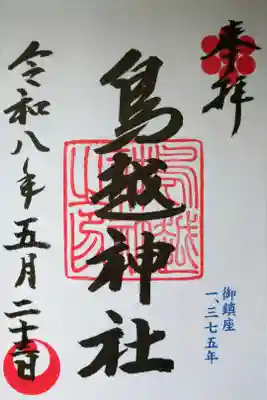 奉拝
鳥越神社
御鎮座
一、三七五年
令和八年五月二十三日